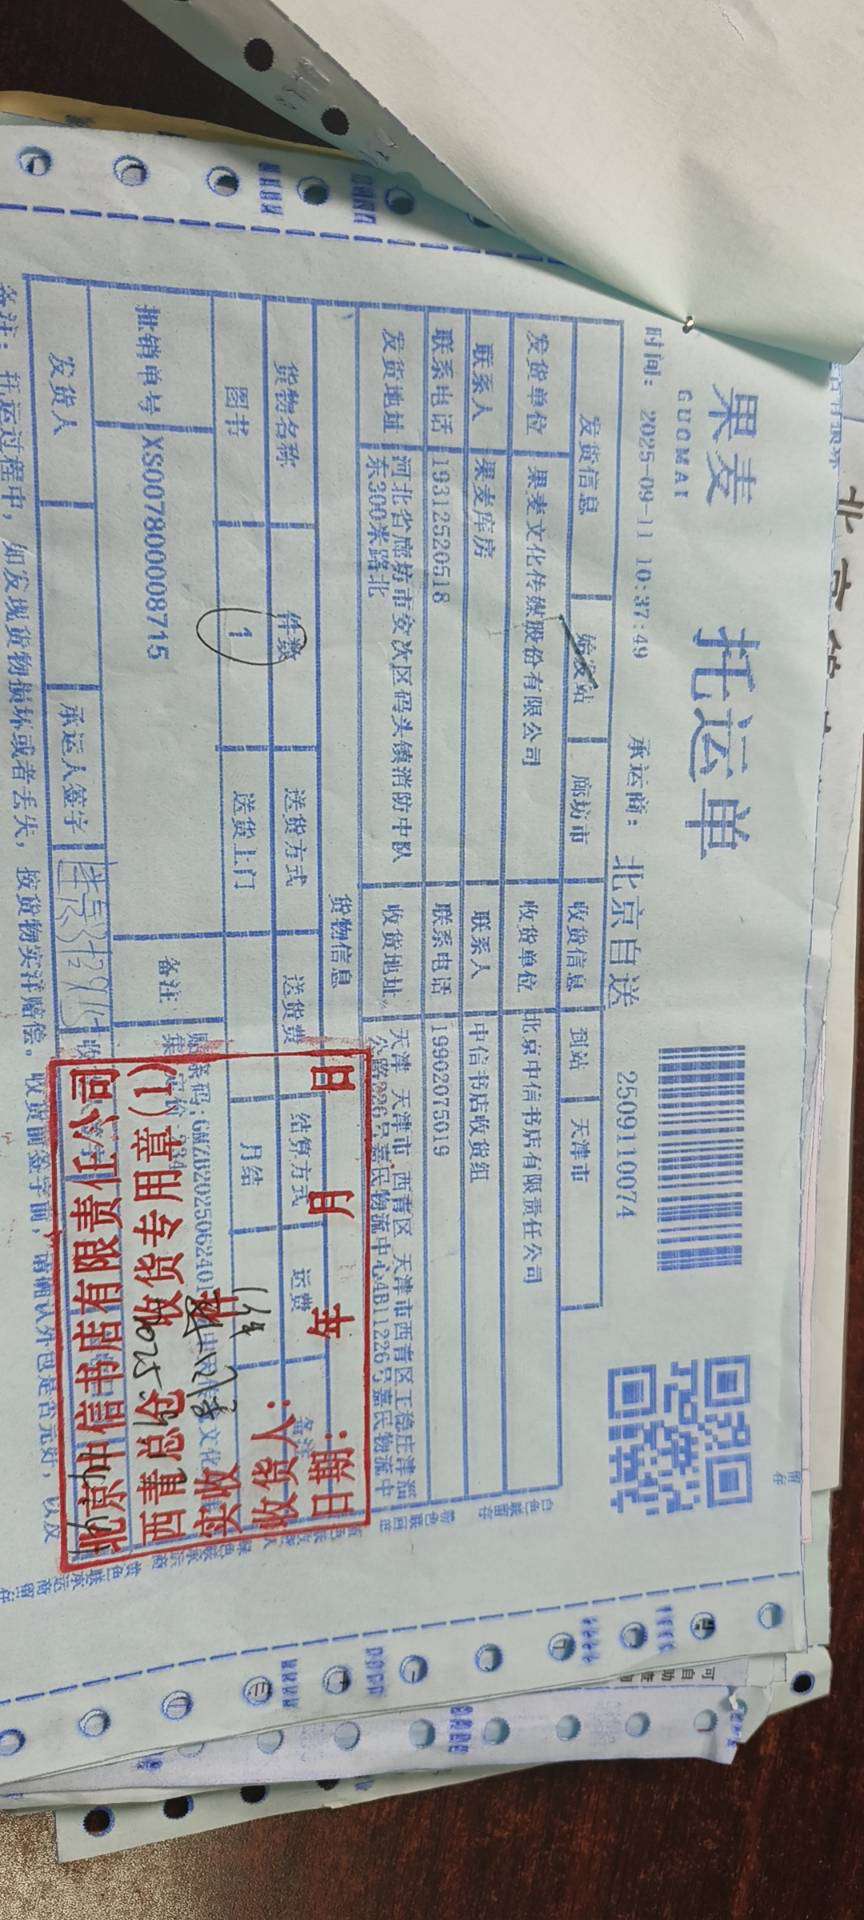 果麦
GUOMAI
托运单
时间: 2025-09-11 10:37:49
承运商: 北京自送
2509110074
发货信息
始发站
廊坊市
收货信息
到站
天津市
发货单位
果麦文化传媒股份有限公司
收货单位
北京中信书店有限责任公司
联系人
果麦库房
联系人
中信书店收货组
联系电话
19312520518
联系电话
19902075019
发货地址
河北省廊坊市安次区码头镇消防中队
东300米路北
收货地址
天津 天津市 西青区 天津市西青区王稳庄津淄
公路226号嘉民物流中心4B11226号嘉民物流中
货物信息
货物名称
件数
送货方式
送货费
结算方式
运费
图书
1
送货上门
月结
批销单号
XS007800008715
备注:
发货人
承运人签字
备注: 托运过程中, 如发现货物损坏或者丢失, 按货物实洋赔偿。收货前签字前, 请确认外包是否完好, 以及
北京中信书店有限责任公司
西青总仓 收货专用章(1)
实收 件
收货人:
日期: 年 月 日